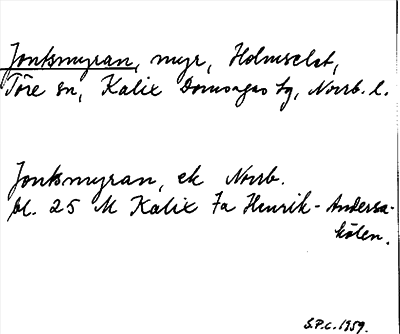 Jonksmyran, myr, Holmselet,
Töre sn, Kalix Domsagas tg, Norrb. l.
Jonksmyran, ek Norrb.
bl. 25 M Kalix 7a Henrik-Andersa-
kölen.
S.P.C. 1959.